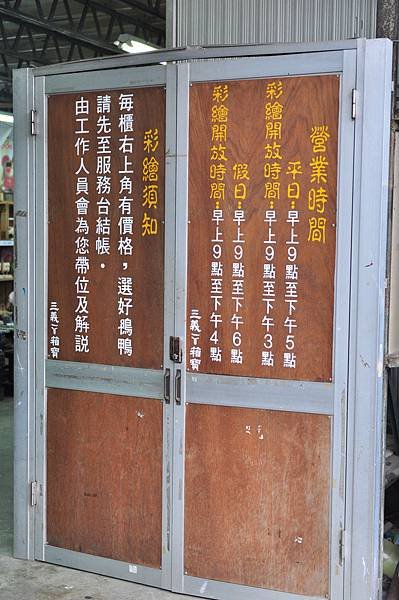 營業時間
平日：早上9點至下午5點
彩繪開放時間：早上9點至下午3點
假日：早上9點至下午6點
彩繪開放時間：早上9點至下午4點
三義丫箱寶
彩繪須知
每櫃右上角有價格，選好鴨鴨
請先至服務台結帳．
由工作人員會為您帶位及解說
三義丫箱寶